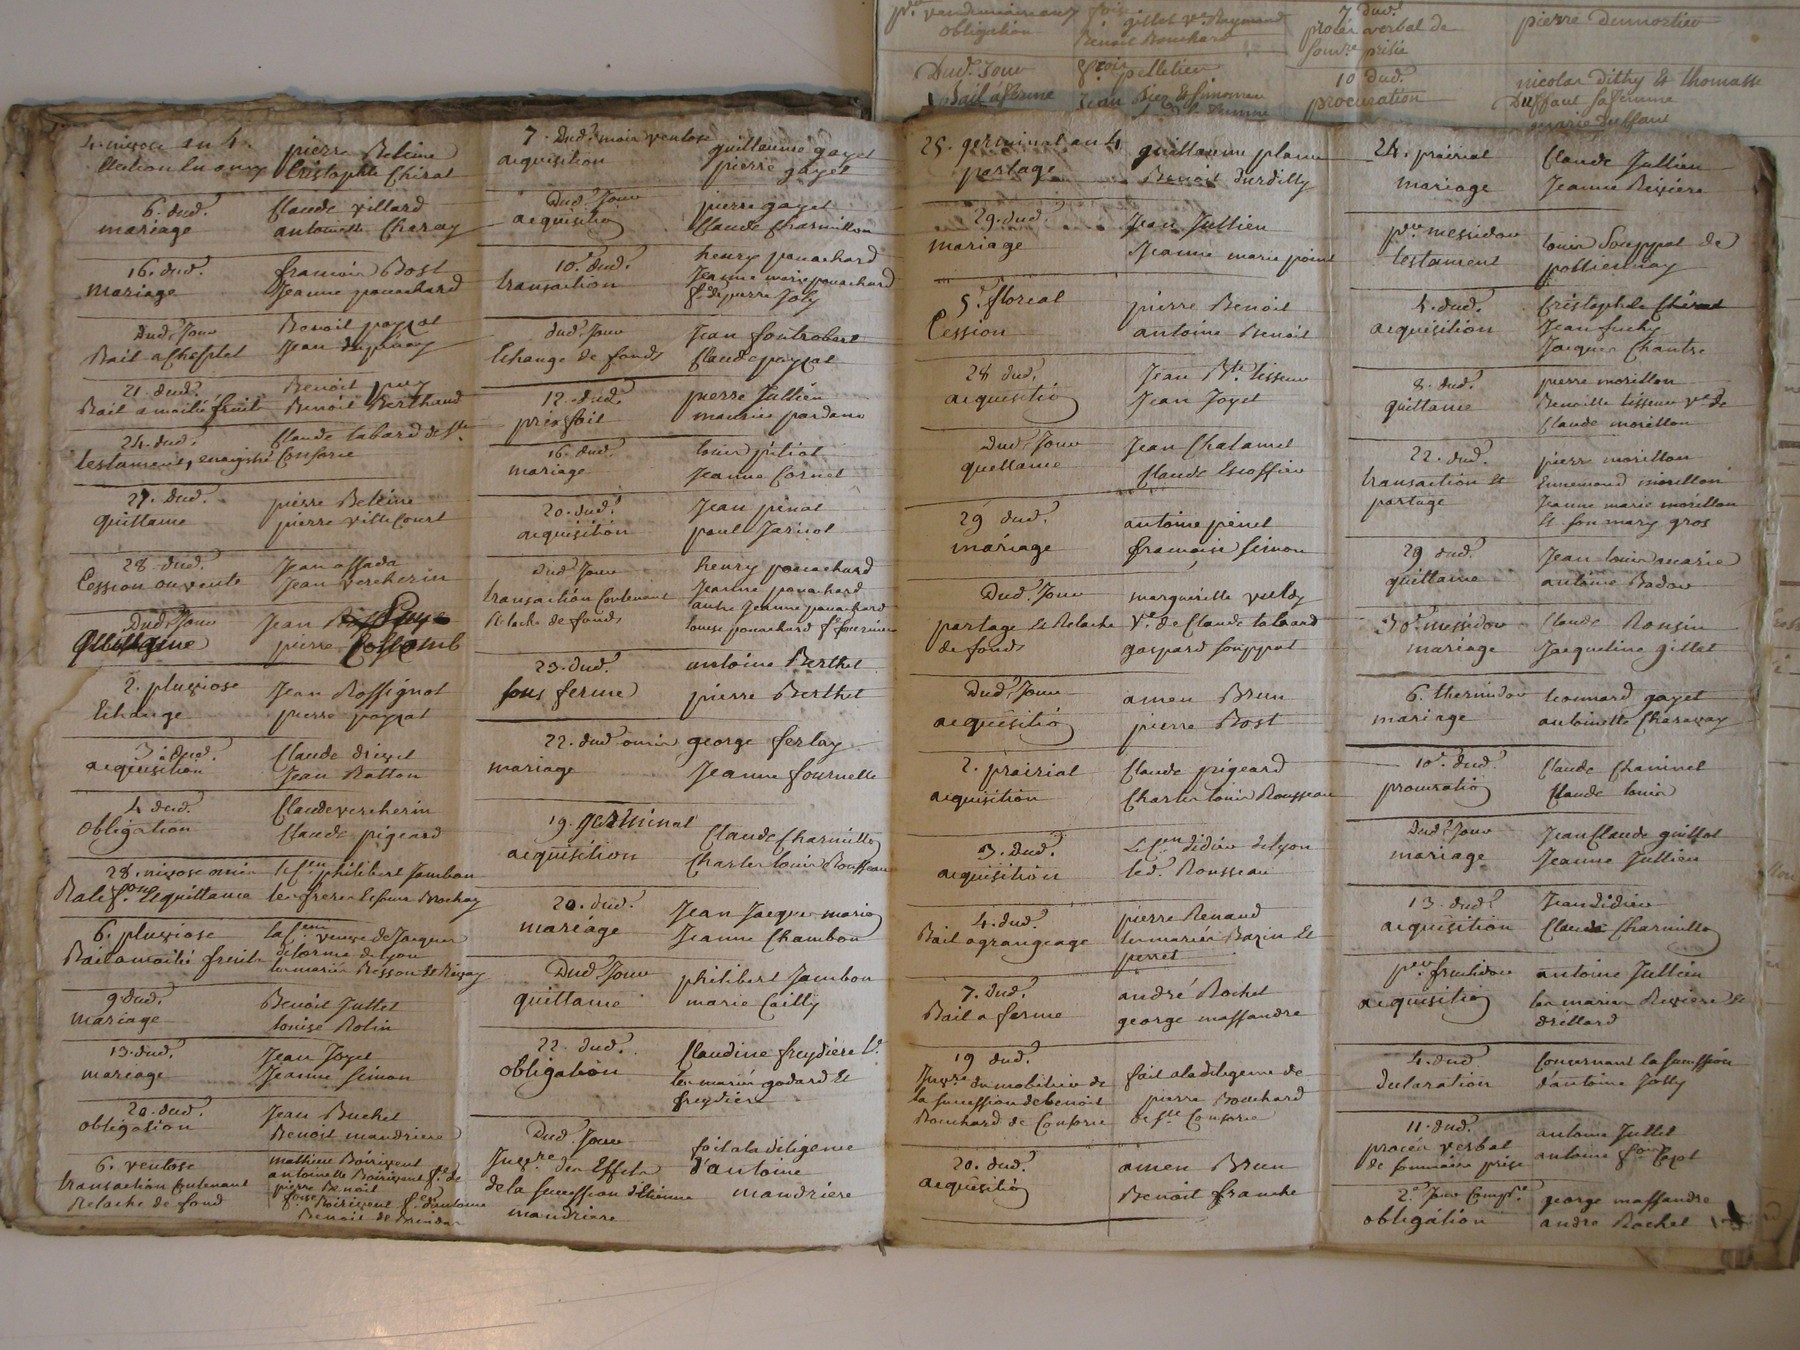 per vendemiaire
obligation gillet ve Raymond
Benoit Bouchard
7 dud.
procés verbal de
somre prisée
pierre dumortier
Dud. Jour pelletier
Bail à ferme
10 dud.
procuration
nicolas dithy et thomasse
Duffaut sa femme
marie duffaut
4. nivose an 4. pierre Beleine
Cristophle Chirat
6. dud. Claude villard
mariage antoinette Charay
16. dud. francois Bost
mariage Jeanne pouachard
Dud. Jour Benoit payzat
Bail a Cheptel Jean
21 dud. Benoit puy
Bail a moitié fruits Benoit Berthaud
24. dud. Claude tabard de Ste
testament, enregistré Consorce
27. Dud. pierre Beleine
quittance pierre villeCourt
28. dud. Jean assada
Cession ou vente Jean vercherin
Dud. Jour Jean
quittance pierre
2. pluviose Jean Rossignol
Echange pierre payzat
3. dud. Claude drivet
acquisition Jean Ratton
4 dud. Claude vercherin
obligation Claude pigeard
28. nivose omis le Cen philibert Jambon
Ratifon et quittance les freres et soeur Brochay
6. pluviose la Cenne veuve de Jacques
Bail a moitié fruits delorme de Lyon
les mariés Besson et
9. dud. Benoit Jullet
mariage Louise Rolin
13. dud. Jean Joyet
mariage Jeanne Simon
20. dud. Jean Buchet
obligation Benoit mandriere
6. ventose mathieu Boirivent
transaction Contenant antoinette Boirivent fe de
Relache de fond pierre Benoit
Boirivent fe d'antoine
Benoit de Brindas
7. Dud. mois ventose guillaume gayet
acquisition pierre gayet
Dud. Jour pierre gayet
acquisition Claude Charmillon
10. dud. henry pouachard
transaction Jeanne marie pouachard
fe de pierre Joly
Dud. Jour Jean fontrobert
Echange de fonds Claude payzat
12. dud. pierre Jullien
prix fait maurice pardane
16. dud. Louis pitiot
mariage Jeanne Cornet
20. dud. Jean pinat
acquisition paul Jarinot
Dud. Jour henry pouachard
transaction Contenant Jeanne pouachard
Relache de fonds autre Jeanne pouachard
Louise pouachard fe fournier
23. dud. antoine Berthet
sous ferme pierre Berthet
22. dud. omis george ferlay
mariage Jeanne fournelle
19. germinal Claude Charmillon
acquisition Charles Louis Rousseau
20. dud. Jean Jacques marie
mariage Jeanne Chambon
Dud. Jour philibert Jambon
quittance marie Cailly
22. dud. Claudine freydiere Ve
obligation les mariés godard et
freydiere
Dud. Jour fait a la diligence
Invre des Effets d'antoine
de la succession d'Etienne mandriere
mandriere
25. germinal an 4 guillaume plame
partage Benoit durdilly
29. dud. Jean Jullien
mariage Jeanne marie point
5. floreal pierre Benoit
Cession antoine Benoit
28 dud. Jean Bte tisseur
acquisition Jean Joyet
Dud. Jour Jean Chatanet
quittance Claude Escoffier
29 dud. antoine pinet
mariage francoise Simon
Dud. Jour marguerite
partage et Relache Ve de Claude tabaard
de fonds gaspard souppat
Dud. Jour amen Brun
acquisition pierre Bost
2. prairial Claude pigeard
acquisition Charles Louis Rousseau
3. Dud. Le Cen didier de lyon
acquisition led. Rousseau
4. dud. pierre Renaud
Bail a grangeage les mariés Bazin et
perret
7. Dud. andré Rochet
Bail a ferme george massandre
19 dud. fait a la diligence de
Invre du mobilier de pierre Bouchard
la succession de benoit de Ste Consorce
Bouchard de Consorce
20. dud. amen Brun
acquisition Benoit franche
24. prairial Claude Jullien
mariage Jeanne Riviere
per messidor Louis Souppat de
testament pollionnay
4. dud. Cristophle Chirat
acquisition Jean fuchy
Jacques Chantre
8. dud. pierre morillon
quittance Benoitte tisseur ve de
Claude morillon
22. dud. pierre morillon
transaction et Ennemond morillon
partage Jeanne marie morillon
et son mary gros
29 dud. Jean Louis marie
quittance antoine Badou
30. messidor Claude Ronzin
mariage Jacqueline gillet
6. thermidor Leonnard gayet
mariage antoinette Charavay
10. dud. Claude Chaninel
procuration Claude Louis
Dud. Jour Jean Claude guillot
mariage Jeanne Jullien
13. dud. Jean didier
acquisition Claude Charmillon
per fructidor antoine Jullien
acquisition les mariés Riviere et
drillard
4. dud. Concernant la succession
declaration d'antoine Jolly
11. dud. antoine Jullet
procés verbal antoine
de sommaire prise
2e Jour Complre george massandre
obligation andre Rochet